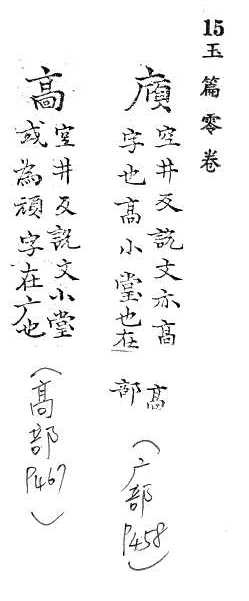 15玉篇零卷
廎
空井反說文亦高
字也高小堂也在
高
部
(广部 P458)
高
空井反說文小堂
或為廎字在广也
(高部 P467)